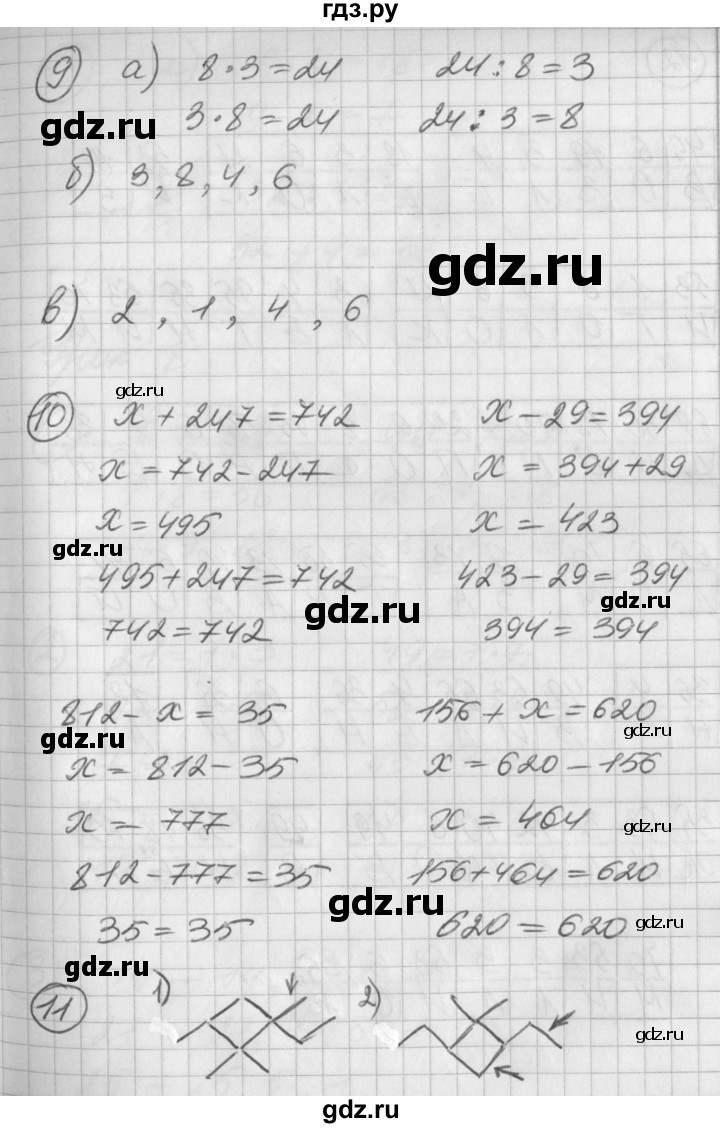 гдз.ру
9 а) 8·3=24 24:8=3
gdz.ru
3·8=24 24:3=8
б) 3, 8, 4, 6
gdz.ru
в) 2, 1, 4, 6
gdz.ru
10 x+247=742 x-29=394
x=742-247 x=394+29
x=495 x=423
gdz.ru
495+247=742 423-29=394
gdz.ru
gdz.ru
742=742 394=394
812-x=35 156+x=620
gdz.ru
gdz.ru
x=812-35 x=620-156
x=777 x=464
gdz.ru
812-777=35 156+464=620
gdz.ru
35=35 620=620
gdz.ru
gdz.ru
11 1) 2)
gdz.ru
gdz.ru
gdz.ru